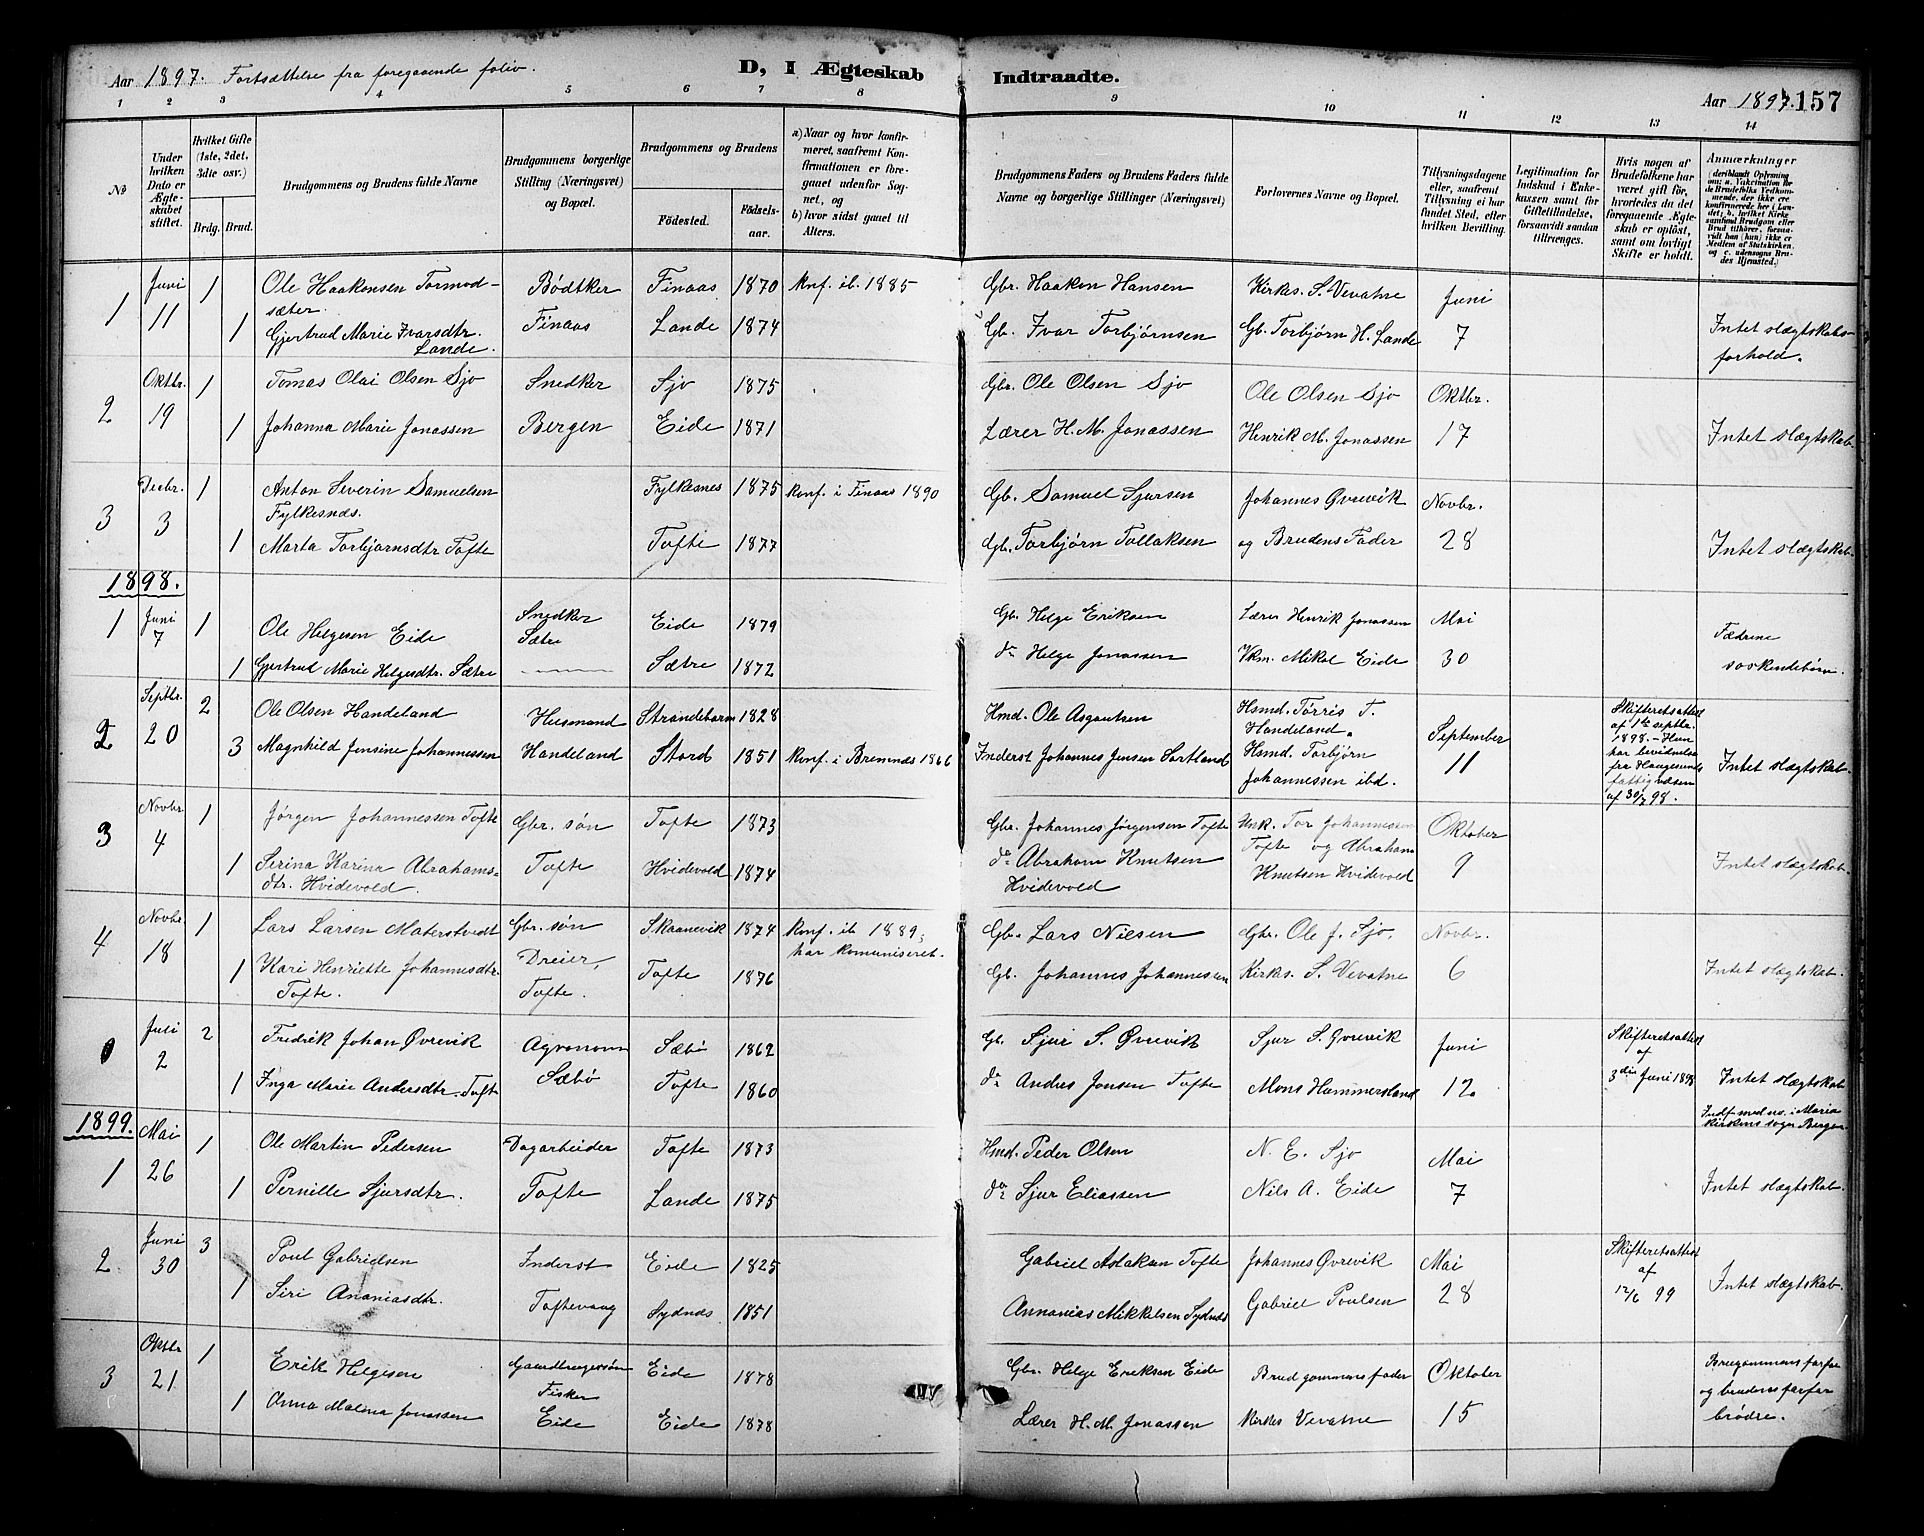 Aar 1897. Fortsættelse fra foregaaende folio.
D, I Ægteskab Indtraadte.
Aar 1897. 157
1 2 3 4 5 6 7 8 9 10 11 12 13 14
No
Under hvilken Dato er Ægteskabet stiftet.
Hvilket Gifte (1ste, 2det, 3die osv.)
Brdg. Brud.
Brudgommens og Brudens fulde Navne
Brudgommens borgerlige Stilling (Næringsvei) og Bopæl.
Brudgommens og Brudens
Fødested.
Fødselsaar.
a) Naar og hvor konfirmeret, saafremt Konfirmationen er foregaaet udenfor Sognet, og
b) hvor sidst gaaet til Alters.
Brudgommens Faders og Brudens Faders fulde Navne og borgerlige Stillinger (Næringsvei)
Forlovernes Navne og Bopæl.
Tillysningsdagene eller, saafremt Tillysning ei har fundet Sted, efter hvilken Bevilling.
Legitimation for Indskud i Enkekassen samt for Giftetilladelse, forsaavidt saadan tiltrænges.
Hvis nogen af Brudefolkene har været gift før, hvorledes da det foregaaende Ægteskab er opløst, samt om lovligt Skifte er holdt.
Anmærkninger
(deriblandt Oplysning om: a. Vaksination for de Brudefolks Vedkommende, der ikke ere konfirmerede her i Landet; b. hvilket Kirkesamfund Brudgom eller Brud tilhører, forsaavidt han (hun) ikke er Medlem af Statskirken, og c. udensogns Brudes Hjemsted.)
1 Juni 11 1 Ole Haakensen Tormodsæter. Bødtker Finaas 1870 Knf. ib. 1885 Gbr. Haakon Hansen Kirks. S. Vevatne Juni
1 Gjertrud Marie Ivarsdtr. Lande. Finaas Lande 1874 Gb. Ivar Torbjørnsen Gb. Torbjørn H. Lande 7 Intet slægtskabsforhold.
2 Oktbr. 19 1 Tomas Olai Olsen Sjo Snedker Sjo 1875 Gbr. Ole Olsen Sjo Ole Olsen Sjo Oktbr.
1 Johanna Marie Jonassen Bergen Eide 1871 Lærer H. M. Jonassen Henrik M. Jonassen 17 Intet slægtskab.
3 Decbr. 3 1 Anton Severin Samuelsen Fylkesnæs. Fylkesnes 1875 Konf. i Finaas 1890 Gb. Samuel Sjursen Johannes Øvrevik Novbr.
1 Marta Torbjørnsdtr Tofte Tofte 1877 Gb. Torbjørn Tollaksen og Brudens Fader 28 Intet slægtskab.
1898.
1 Juni 7 1 Ole Helgesen Eide Snedker Sætre Eide 1879 Gb. Helge Eriksen Lærer Henrik Jonassen Mai
1 Gjertrud Marie Helgesdtr. Sætre Sætre 1872 do Helge Jonassen Vkm. Mikal Eide 30 Fædrene søskendebørn.
2 Septbr. 20 2 Ole Olsen Handeland Husmand Strandebarm 1828 Hmd. Ole Asgautsen Hsmd. Tørris T. Handeland. September Skifteretsattest af 1te septbr. 1898. - Hun har bevidnelse fra Haugesunds fattigvæsen af 30/7 98.
3 Magnhild Jensine Johannessen Handeland Stord 1851 Konf. i Bremnæs 1866 Inderst Johannes Jensen Sortland Hsmd. Torbjørn Johannessen ibd. 11 Intet slægtskab.
3 Novbr 4 1 Jørgen Johannessen Tofte Gbr. søn Tofte 1873 Gbr. Johannes Jørgensen Tofte Unk. Tor Johannessen Oktober
1 Serina Karina Abrahamsdtr. Hvidevold. Tofte Hvidevold 1874 do Abraham Knutsen Hvidevold Tofte og Abraham Knutsen Hvidevold 9 Intet slægtskab.
4 Novbr 18 1 Lars Larsen Materstvedt Gbr. søn Skaanevik 1874 Konf. ib 1889; har komuniseret. Gb. Lars Nilsen Gbr. Ole J. Sjo. Novbr.
1 Kari Henriette Johannesdtr Tofte. Dreier, Tofte. Tofte 1876 Gb. Johannes Johannessen Kirks. S. Vevatne 6 Intet slægtskab.
0 Juli 2 2 Fredrik Johan Øvrevik Agronom Sæbø 1862 Gb. Sjur S. Øvrevik Sjur S. Øvrevik Juni Skifteretsattest af 3die Juni 1898
1 Inga Marie Andersdtr. Tofte Sæbø Tofte 1860 do Andres Jonsen Tofte Mons Hammersland 12. Intet slægtskab.
1899.
Indf. med no. i Mariakirkens sogn Bergen.
1 Mai 26 1 Ole Martin Pedersen Dagarbeider Tofte 1873 Hmd. Peder Olsen N. E. Sjo Mai
1 Pernille Sjursdtr. Tofte Lande 1875 do Sjur Eliassen Nils A. Eide 7 Intet slægtskab.
2 Juni 30 3 Poul Gabrielsen Inderst Eide 1825 Gabriel Aslaksen Tofte Johannes Øvrevik Mai Skifteretsattest af 12/6 99
1 Siri Ananiasdtr. Toftevaag Sydnæs 1851 Annanias Mikkelsen Sydnæs Gabriel Poulsen 28 Intet slægtskab.
3 Oktbr 21 1 Erik Helgesen Gaardbrugersøn Fisker Eide 1878 Gbr. Helge Eriksen Eide Brudgommens fader Oktober Brugommens farfar og brudens farfar brødre.
1 Anna Malena Jonassen Eide Eide 1878 Lærer H. M. Jonassen Kirkes. Vevatne 15